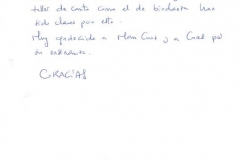 taller de canto como el de biodanza han
sido claves para ello.
Muy agradecido a Mari Cruz y a Coral por
su
GRACIAS